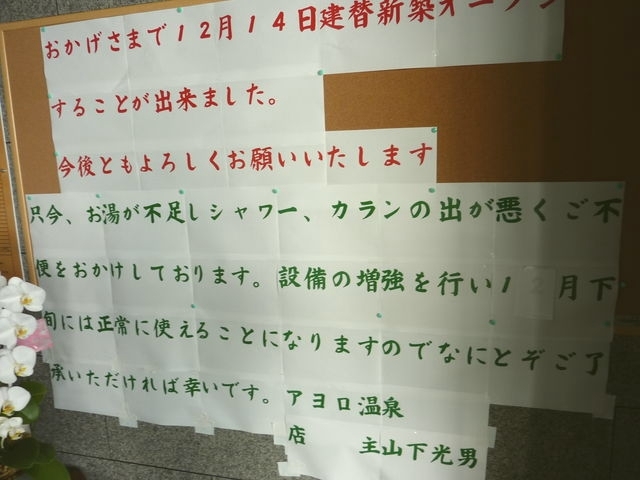 おかげさまで１２月１４日建替新築オープン
することが出来ました。
今後ともよろしくお願いいたします
只今、お湯が不足しシャワー、カランの出が悪くご不
便をおかけしております。設備の増強を行い１２月下
旬には正常に使えることになりますのでなにとぞご了
承いただければ幸いです。
アヨロ温泉
店　主山下光男